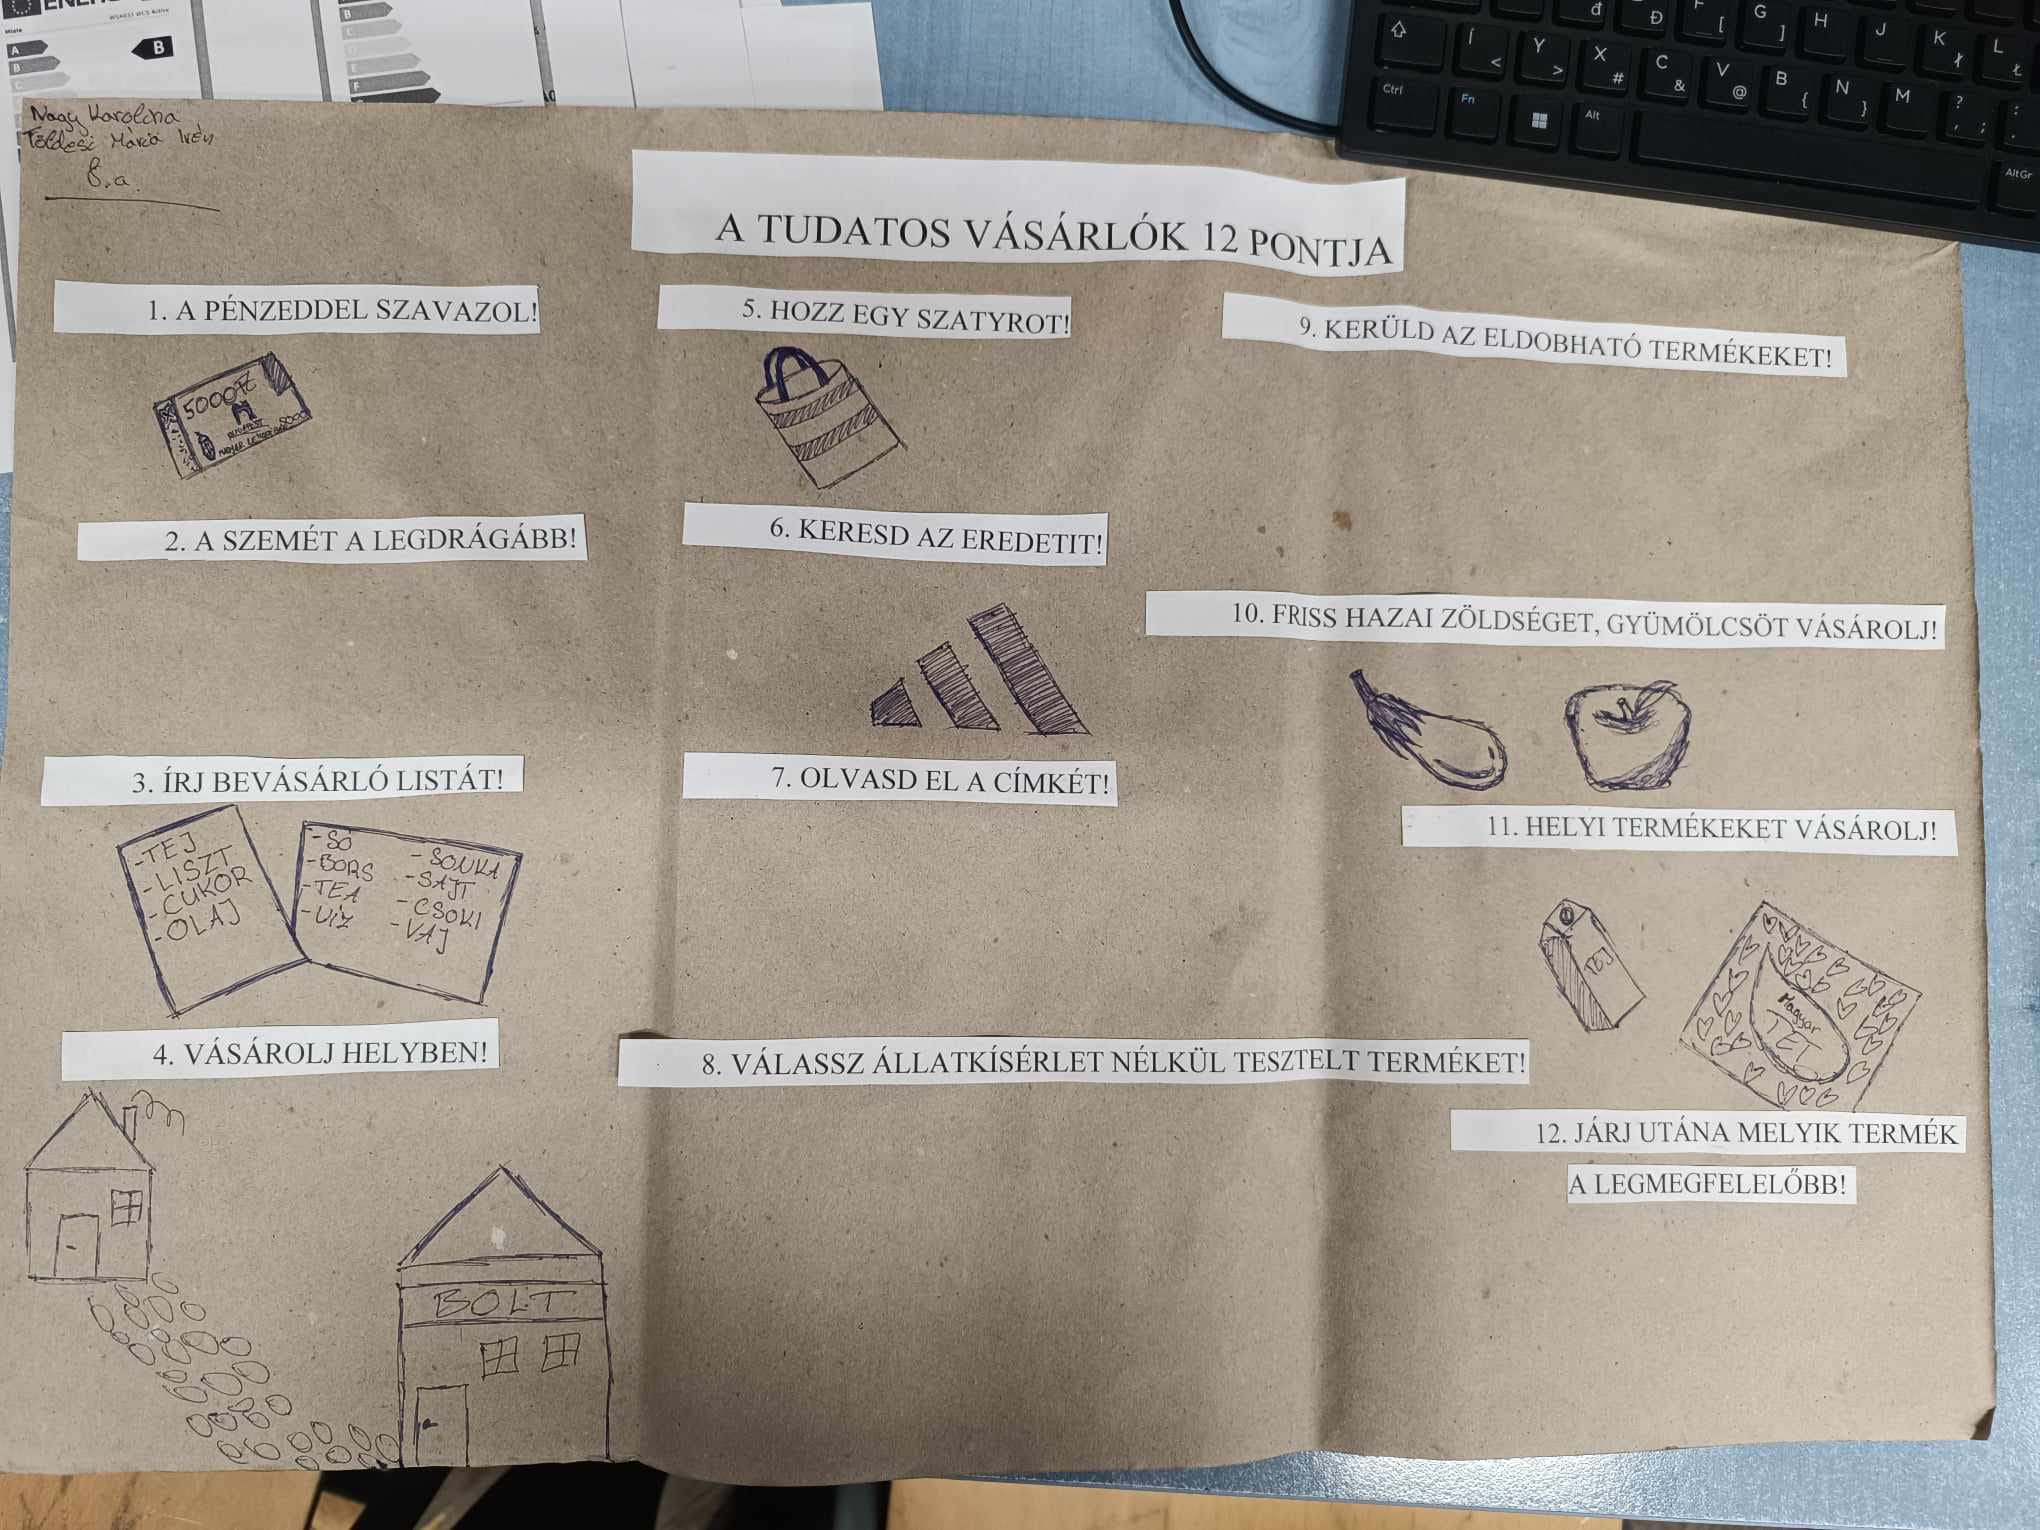 Nagy Karolina
Mária Irén
8.a.
A TUDATOS VÁSÁRLÓK 12 PONTJA
1. A PÉNZEDDEL SZAVAZOL!
5000 Ft
BUDAPEST
5000
2. A SZEMÉT A LEGDRÁGÁBB!
3. ÍRJ BEVÁSÁRLÓ LISTÁT!
-TEJ
-LISZT
-CUKOR
-OLAJ
-SÓ
-BORS
-TEA
-VÍZ
-SONKA
-SAJT
-CSOKI
-VAJ
4. VÁSÁROLJ HELYBEN!
BOLT
5. HOZZ EGY SZATYROT!
6. KERESD AZ EREDETIT!
7. OLVASD EL A CÍMKÉT!
8. VÁLASSZ ÁLLATKÍSÉRLET NÉLKÜL TESZTELT TERMÉKET!
9. KERÜLD AZ ELDOBHATÓ TERMÉKEKET!
10. FRISS HAZAI ZÖLDSÉGET, GYÜMÖLCSÖT VÁSÁROLJ!
11. HELYI TERMÉKEKET VÁSÁROLJ!
TEJ
Magyar
TEJ
12. JÁRJ UTÁNA MELYIK TERMÉK
A LEGMEGFELELŐBB!
Miele
A
B
C
B
B
C
E
F
Ctrl
Fn
Alt
AltGr
Í <
Y >
X #
C &
V @
B {
N }
M
? , ;
: .
G ]
H
J
K ł
L Ł